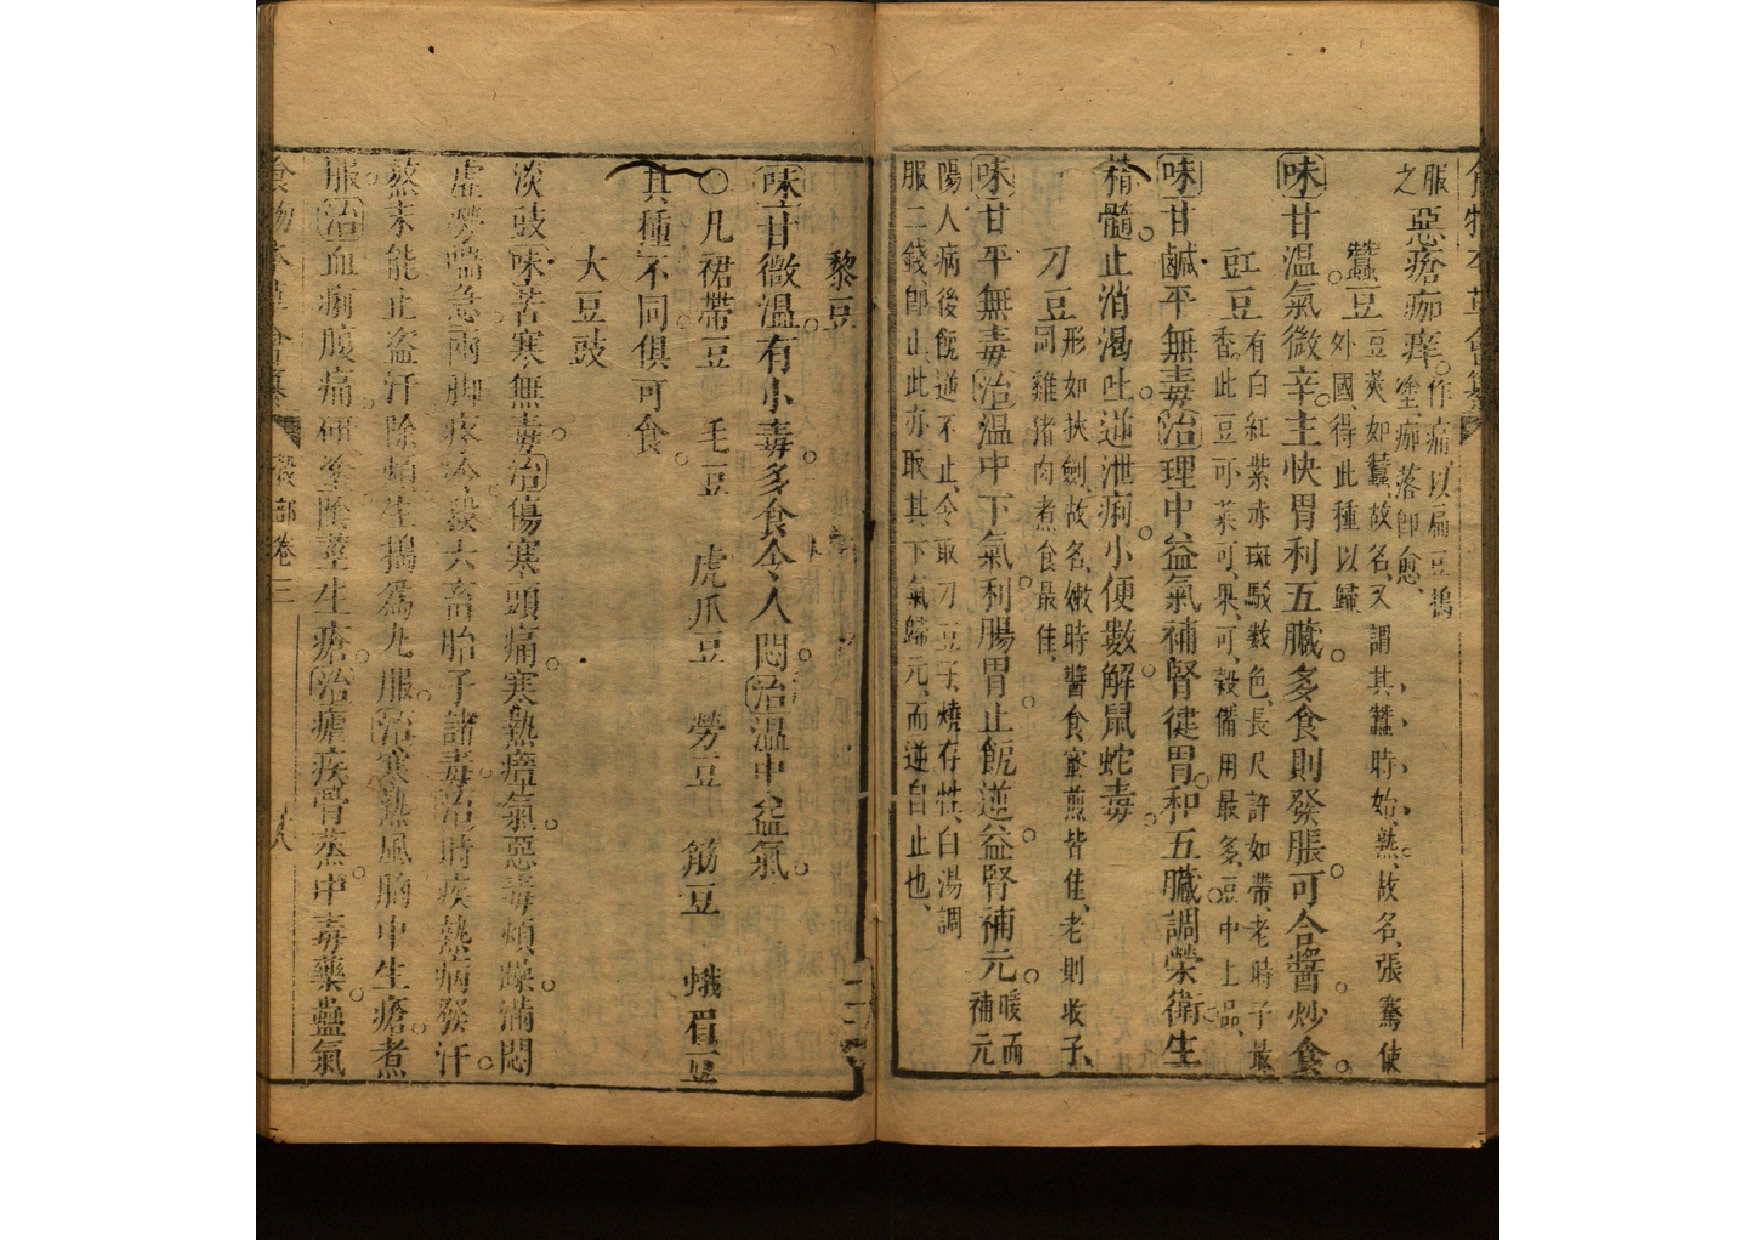 食物本草會纂
服
之
惡瘡痂痒
作痛以扁豆搗
塗痂落卽愈
蠶豆
豆莢如蠶故名又謂其蠶時始熟故名張騫使
外國得此種以歸
味甘溫氣微辛主快胃利五臟多食則發脹可合醬炒食
豇豆
有白紅紫赤斑駁數色長尺許如帶老時子最
香此豆可菜可果可穀備用最多豆中上品
味甘鹹平無毒治理中益氣補腎健胃和五臟調榮衛生
精髓止消渴吐逆泄痢小便數解鼠蛇毒
刀豆
形如挾劍故名嫩時醬食蜜煎皆佳老則收子
同雞猪肉煮食最佳
味甘平無毒治溫中下氣利腸胃止䬽逆益腎補元
暖而
補元
陽人病後䬽逆不止令取刀豆子燒存性白湯調
服二錢卽止此亦取其下氣歸元而逆自止也
黎豆
味甘微溫有小毒多食令人悶治溫中益氣
○凡裙帶豆　毛豆　虎爪豆　勞豆　筋豆　蛾眉豆
其種不同俱可食
大豆豉
淡豉味苦寒無毒治傷寒頭痛寒熱瘴氣惡毒煩躁滿悶
虛勞喘急兩脚疼冷殺六畜胎子諸毒治時疾熱病發汗
熬末能止盜汗除煩生搗爲丸服治寒熱風胸中生瘡煮
服治血痢腹痛研塗陰莖生瘡治瘧疾骨蒸中毒藥蠱氣
食物本草會纂
穀部卷三
八